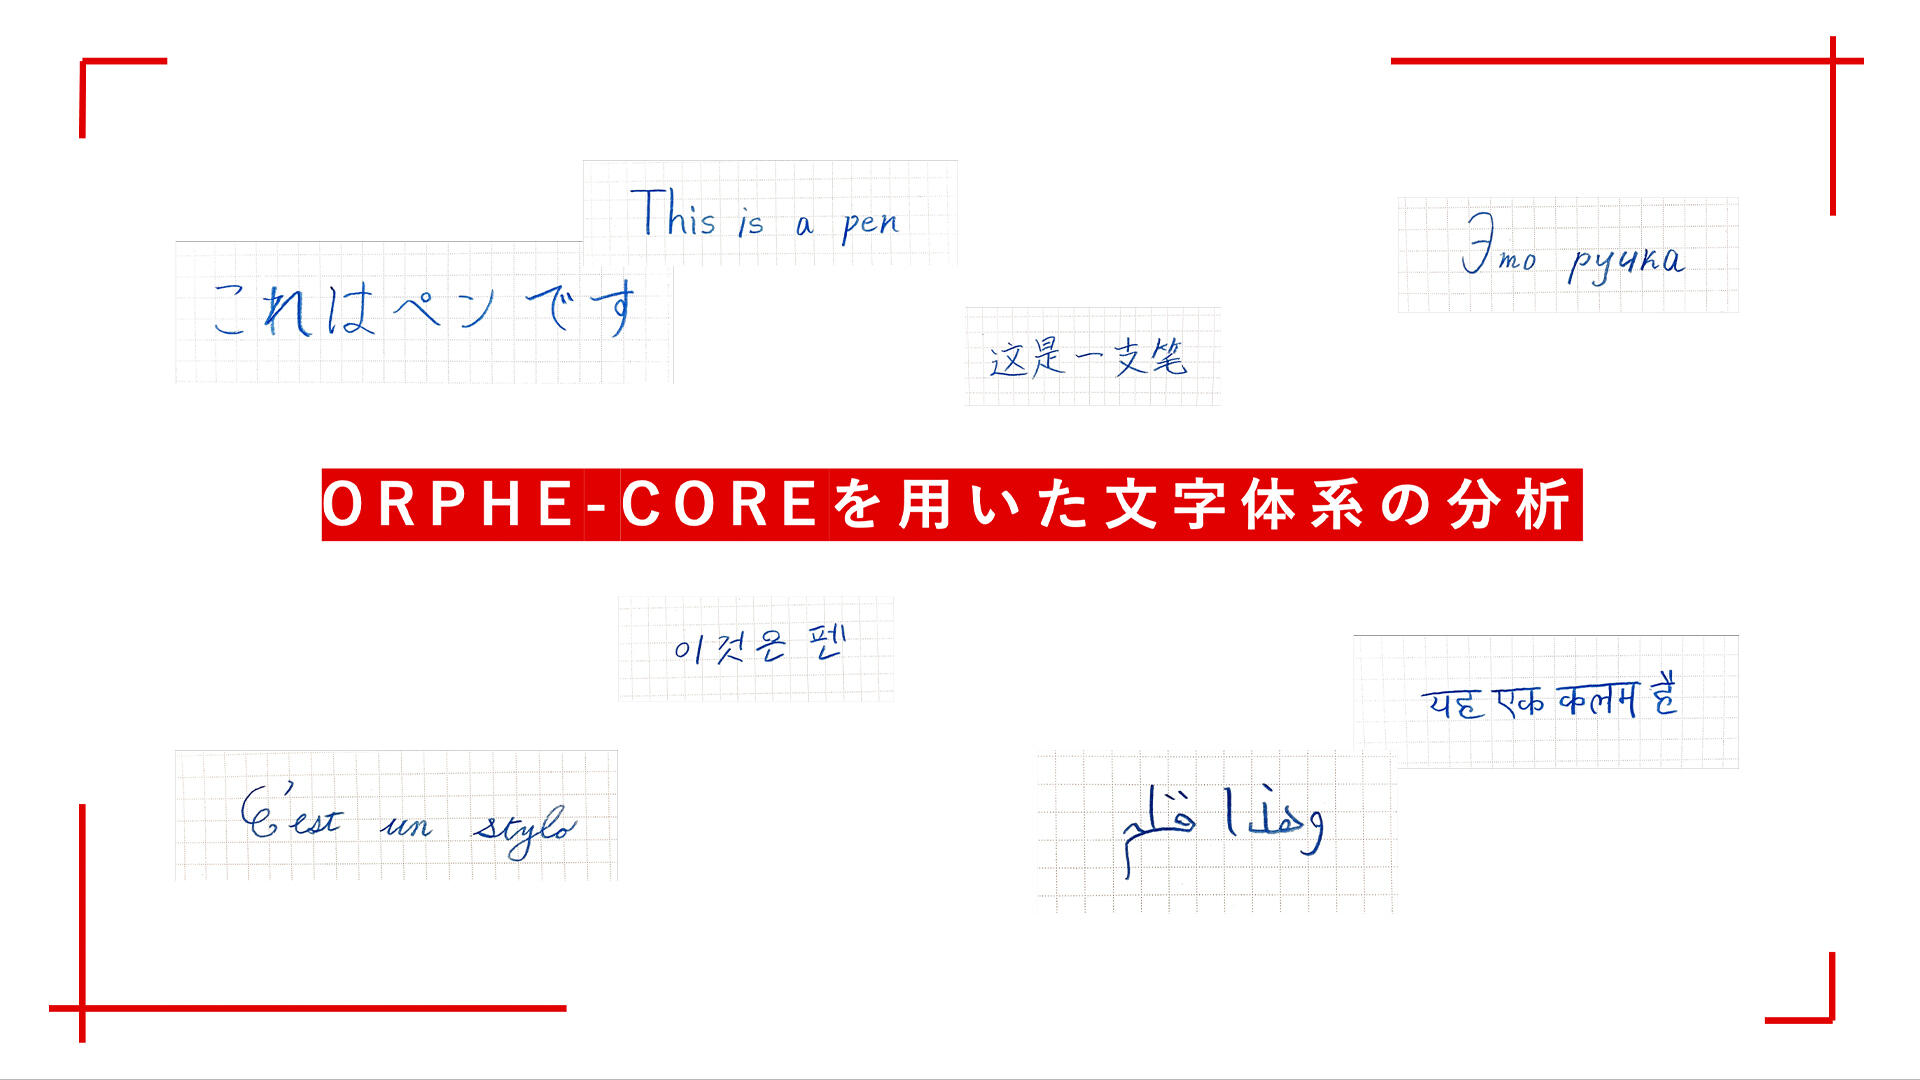 This is a pen
Это ручка
これはペンです
这是一支笔
ORPHE-COREを用いた文字体系の分析
이것은 펜
यह एक कलम है
C'est un stylo
وهذا قلم